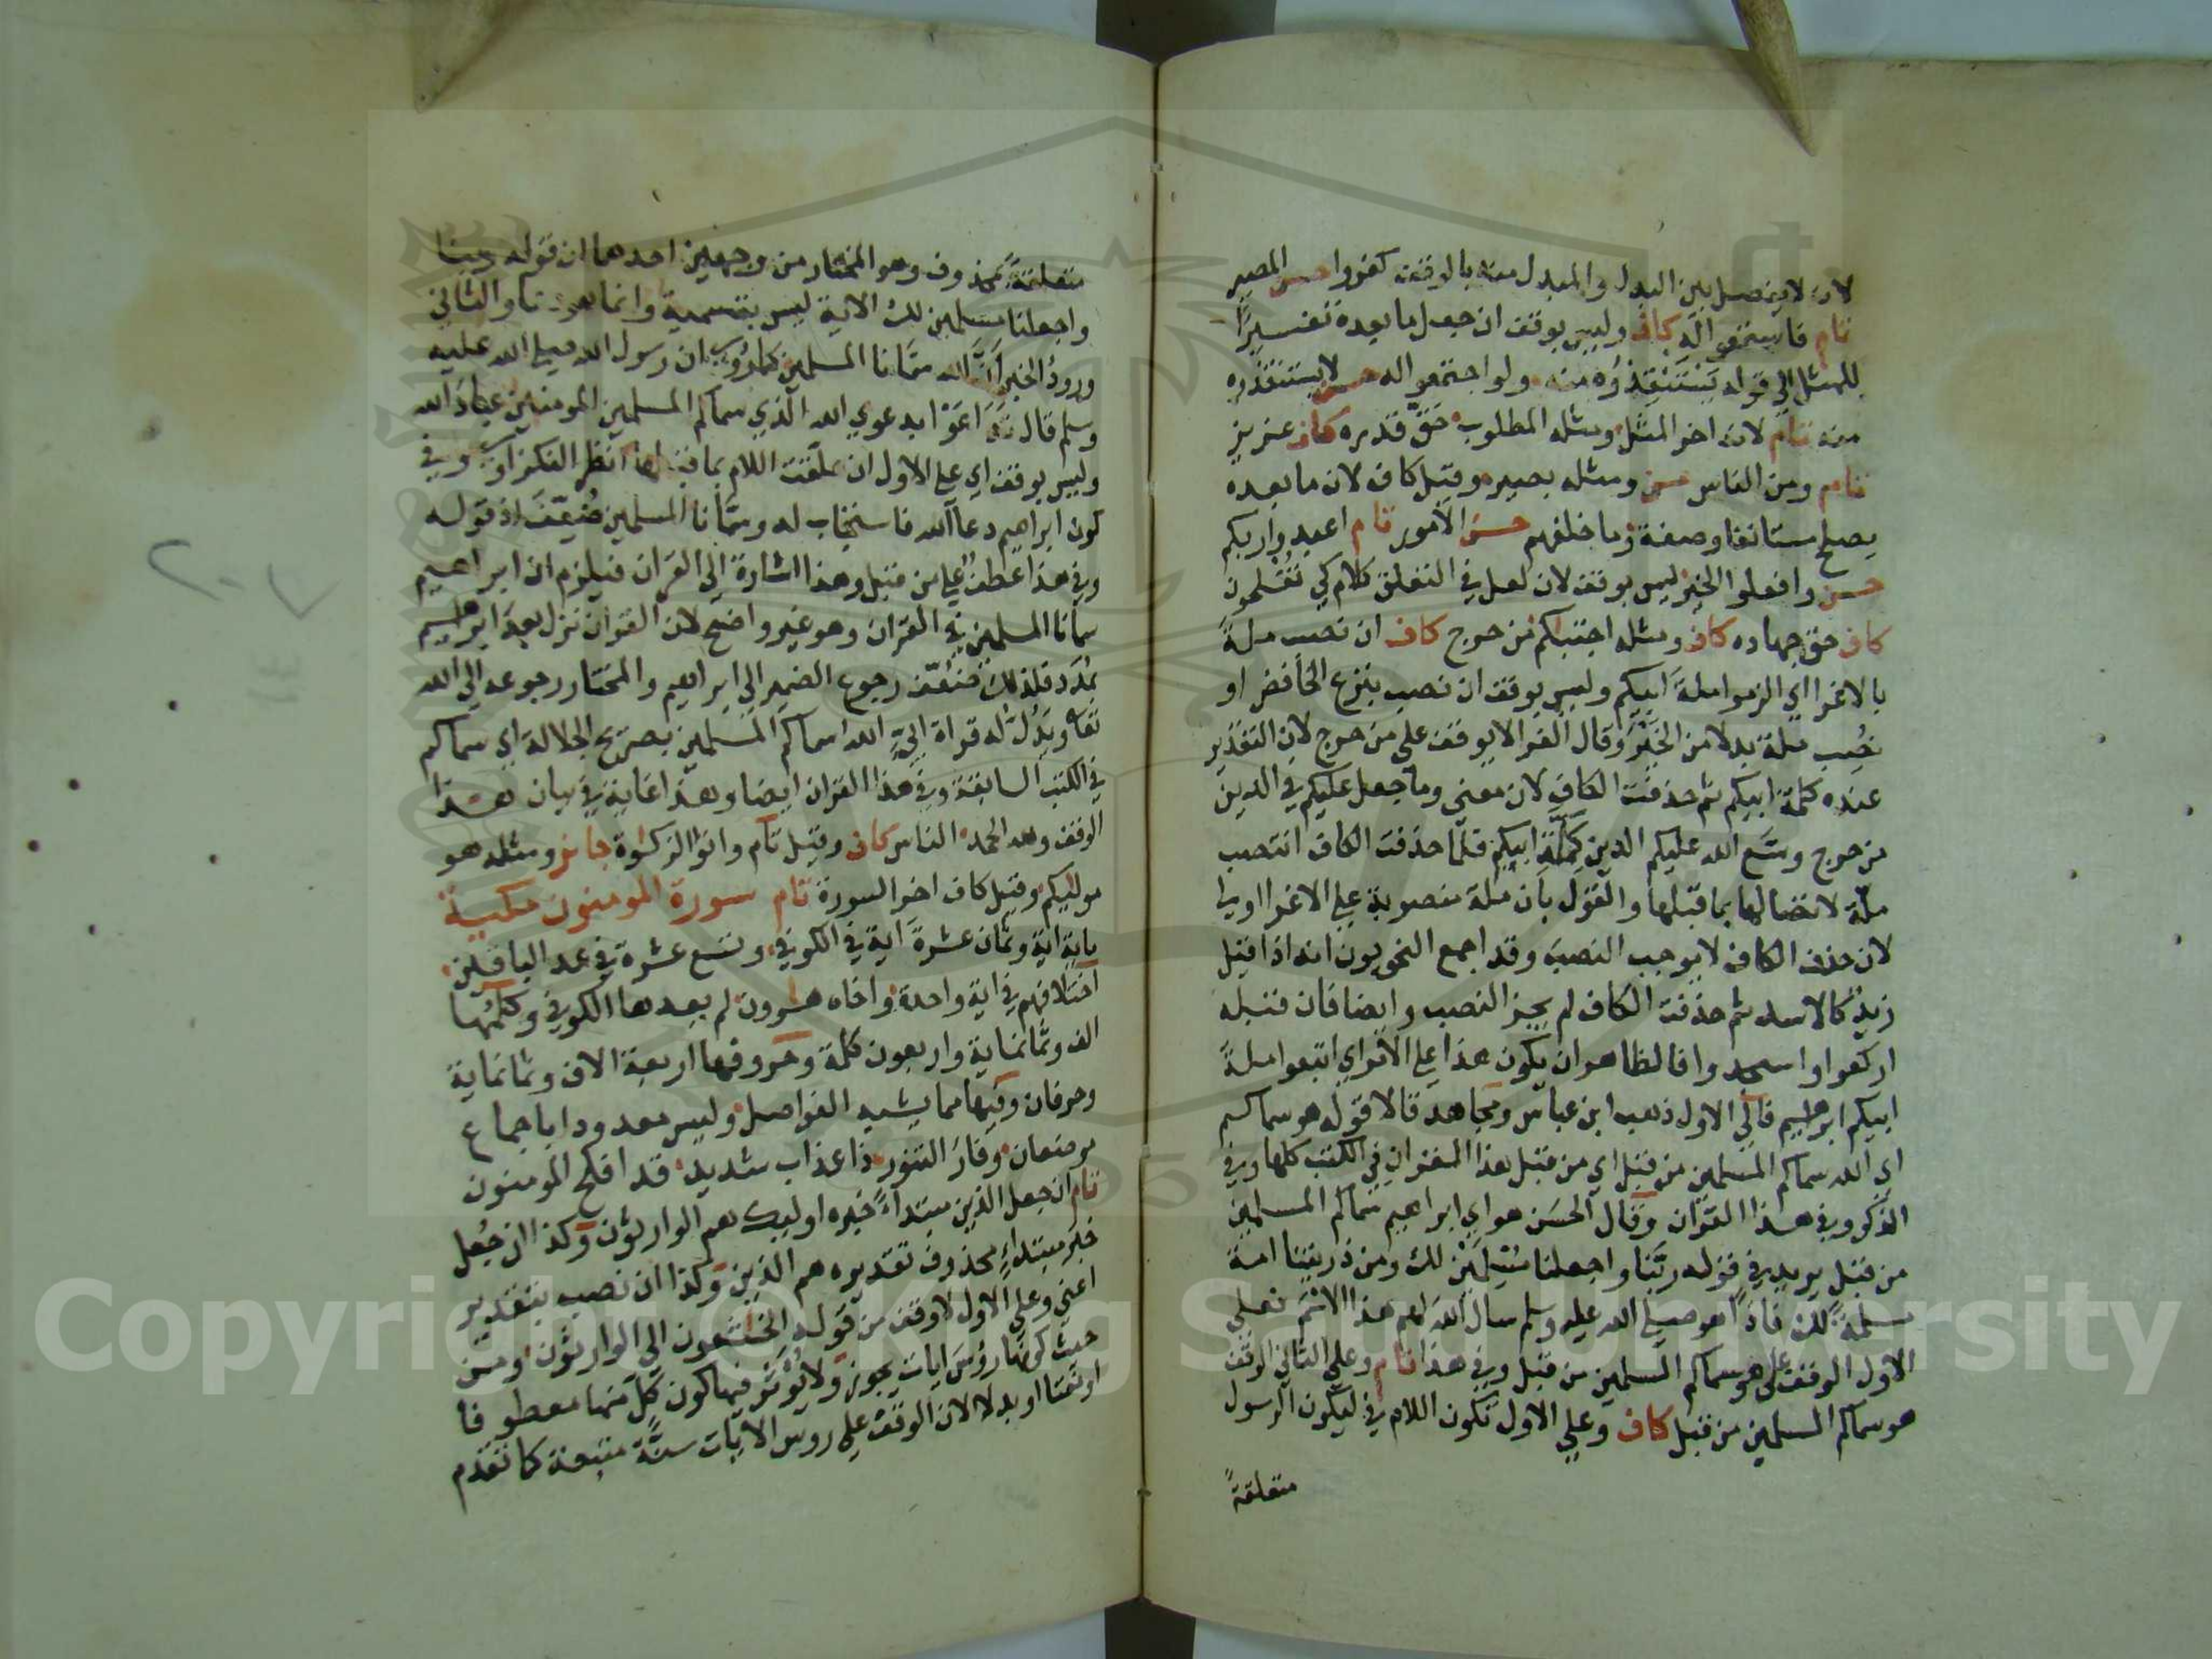 لانه لا يفصل بين البدل والمبدل منه بالوقف كفروا حسن المصير
تام فاستمعوا له كاف وليس بوقف ان جعل ما بعده تفسيرًا
للمثل الى قوله يستنقذوه منه ولو اجتمعوا له حسن لا يستنقذوه
منه تام لانه اخر المثل ومثله المطلوب حق قدره كاف عزيز
تام ومن الناس حسن ومثله بصير وقيل كاف لان ما بعده
يصلح مستانفا وصفة وما خلفهم حسن الامور تام اعبدوا ربكم
حسن وافعلوا الخير ليس بوقف لان لعل في التعلق كلام كي تفلحون
كاف حق جهاده كاف ومثله اجتبيكم من حرج كاف ان نصب ملة
بالاغرا اي الزموا ملة ابيكم وليس بوقف ان نصب بنزع الخافض او
نصب ملة بدلا من الخير وقال الفرا لا يوقف على من حرج لان التقدير
عنده كملة ابيكم ثم حذفت الكاف لان معنى وما جعل عليكم في الدين
من حرج وسّع الله عليكم الدين كملّة ابيكم فلما حذفت الكاف انتصب
ملّة لاتصالها بما قبلها والقول بان ملة منصوبة على الاغرا اولى
لان حذف الكاف لا يوجب النصب وقد اجمع النحويون انه اذا قيل
زيد كالاسد ثم حذفت الكاف لم يجز النصب وايضا فان قبله
اركعوا واسجدوا فالظاهر ان يكون هذا على الامر اي اتبعوا ملةً
ابيكم ابرهيم فالى الاول ذهب ابن عباس ومجاهد قالا قوله هو سماكم
اي الله سماكم المسلمين من قبل اي من قبل هذا القران في الكتب كلها وفي
الذكر وفي هذا القران وقال الحسن هو اي ابراهيم سماكم المسلمين
من قبل يريد في قوله ربّنا واجعلنا مسلمين لك ومن ذريتنا امة
مسلمةً لك فاذًا هو صلى الله عليه وسلم سال الله لهم هذا الاسم فعلى
الاول الوقف على هو سماكم المسلمين من قبل وفي هذا تام وعلى الثاني الوقف
هو سماكم المسلمين من قبل كاف وعلى الاول تكون اللام في ليكون الرسول
متعلقةً
متعلقةً بمحذوف وهو المختار من وجهين احدهما ان قوله ربنا
واجعلنا مسلمين لك الاية ليس بتسمية وانما هو دعا والثاني
ورود الخبر انّ الله سمّانا المسلمين كما روي ان رسول الله صلى الله عليه
وسلم قال تداعَوْا بدعوى الله الّذي سماكم المسلمين المومنين عباد الله
وليس بوقف اي على الاول ان علقت اللام بما قبلها انظر النكزاوي وفي
كون ابراهيم دعا الله فاستجاب له وسمّانا المسلمين ضعيف اذ قوله
وفي هذا عطف على من قبل وهذا اشارة الى القران فيلزم ان ابراهيم
سمانا المسلمين في القران وهو غير واضح لان القران نزل بعد ابرهيم
بمُدَد فلذلك ضعّف رجوع الضمير الى ابراهيم والمختار رجوعه الى الله
تعا ويدل له قراة ابيّ الله سماكم المسلمين بصريح الجلالة اي سماكم
في الكتب السابقة وفي هذا القران ايضا وهذا غاية في بيان هذا
الوقف ولله الحمد الناس كاف وقيل تام واتوا الزكوة جايز ومثله هو
موليكم وقيل كاف اخر السورة تام سورة المومنون مكية
ماية اية وثمان عشرة اية في الكوفي وتسع عشرة في عد الباقين
اختلافهم في اية واحدة واخاه هرون لم يعدها الكوفي وكلمها
الف وثمانماية واربعون كلمة وحروفها اربعة الاف وثمانماية
وحرفان وفيها مما يشبه الفواصل وليس معدودا باجماع
موضعان وفار التنور ذا عذاب شديد قد افلح المومنون
تام ان جعل الذين مبتدأً خبره اوليك هم الوارثون وكذا ان جُعل
خبر مبتداءٍ محذوف تقديره هم الذين وكذا ان نصب بتقدير
اعني وعلى الاول لا وقف من قوله الخاشعون الى الوارثون ومن
حيث كونها رؤس ايات يجوز ولا يؤثر فيها كون كلّ منها معطوفا
او نعتا او بدلا لان الوقف على روس الايات سنّة متبعة كما تقدم